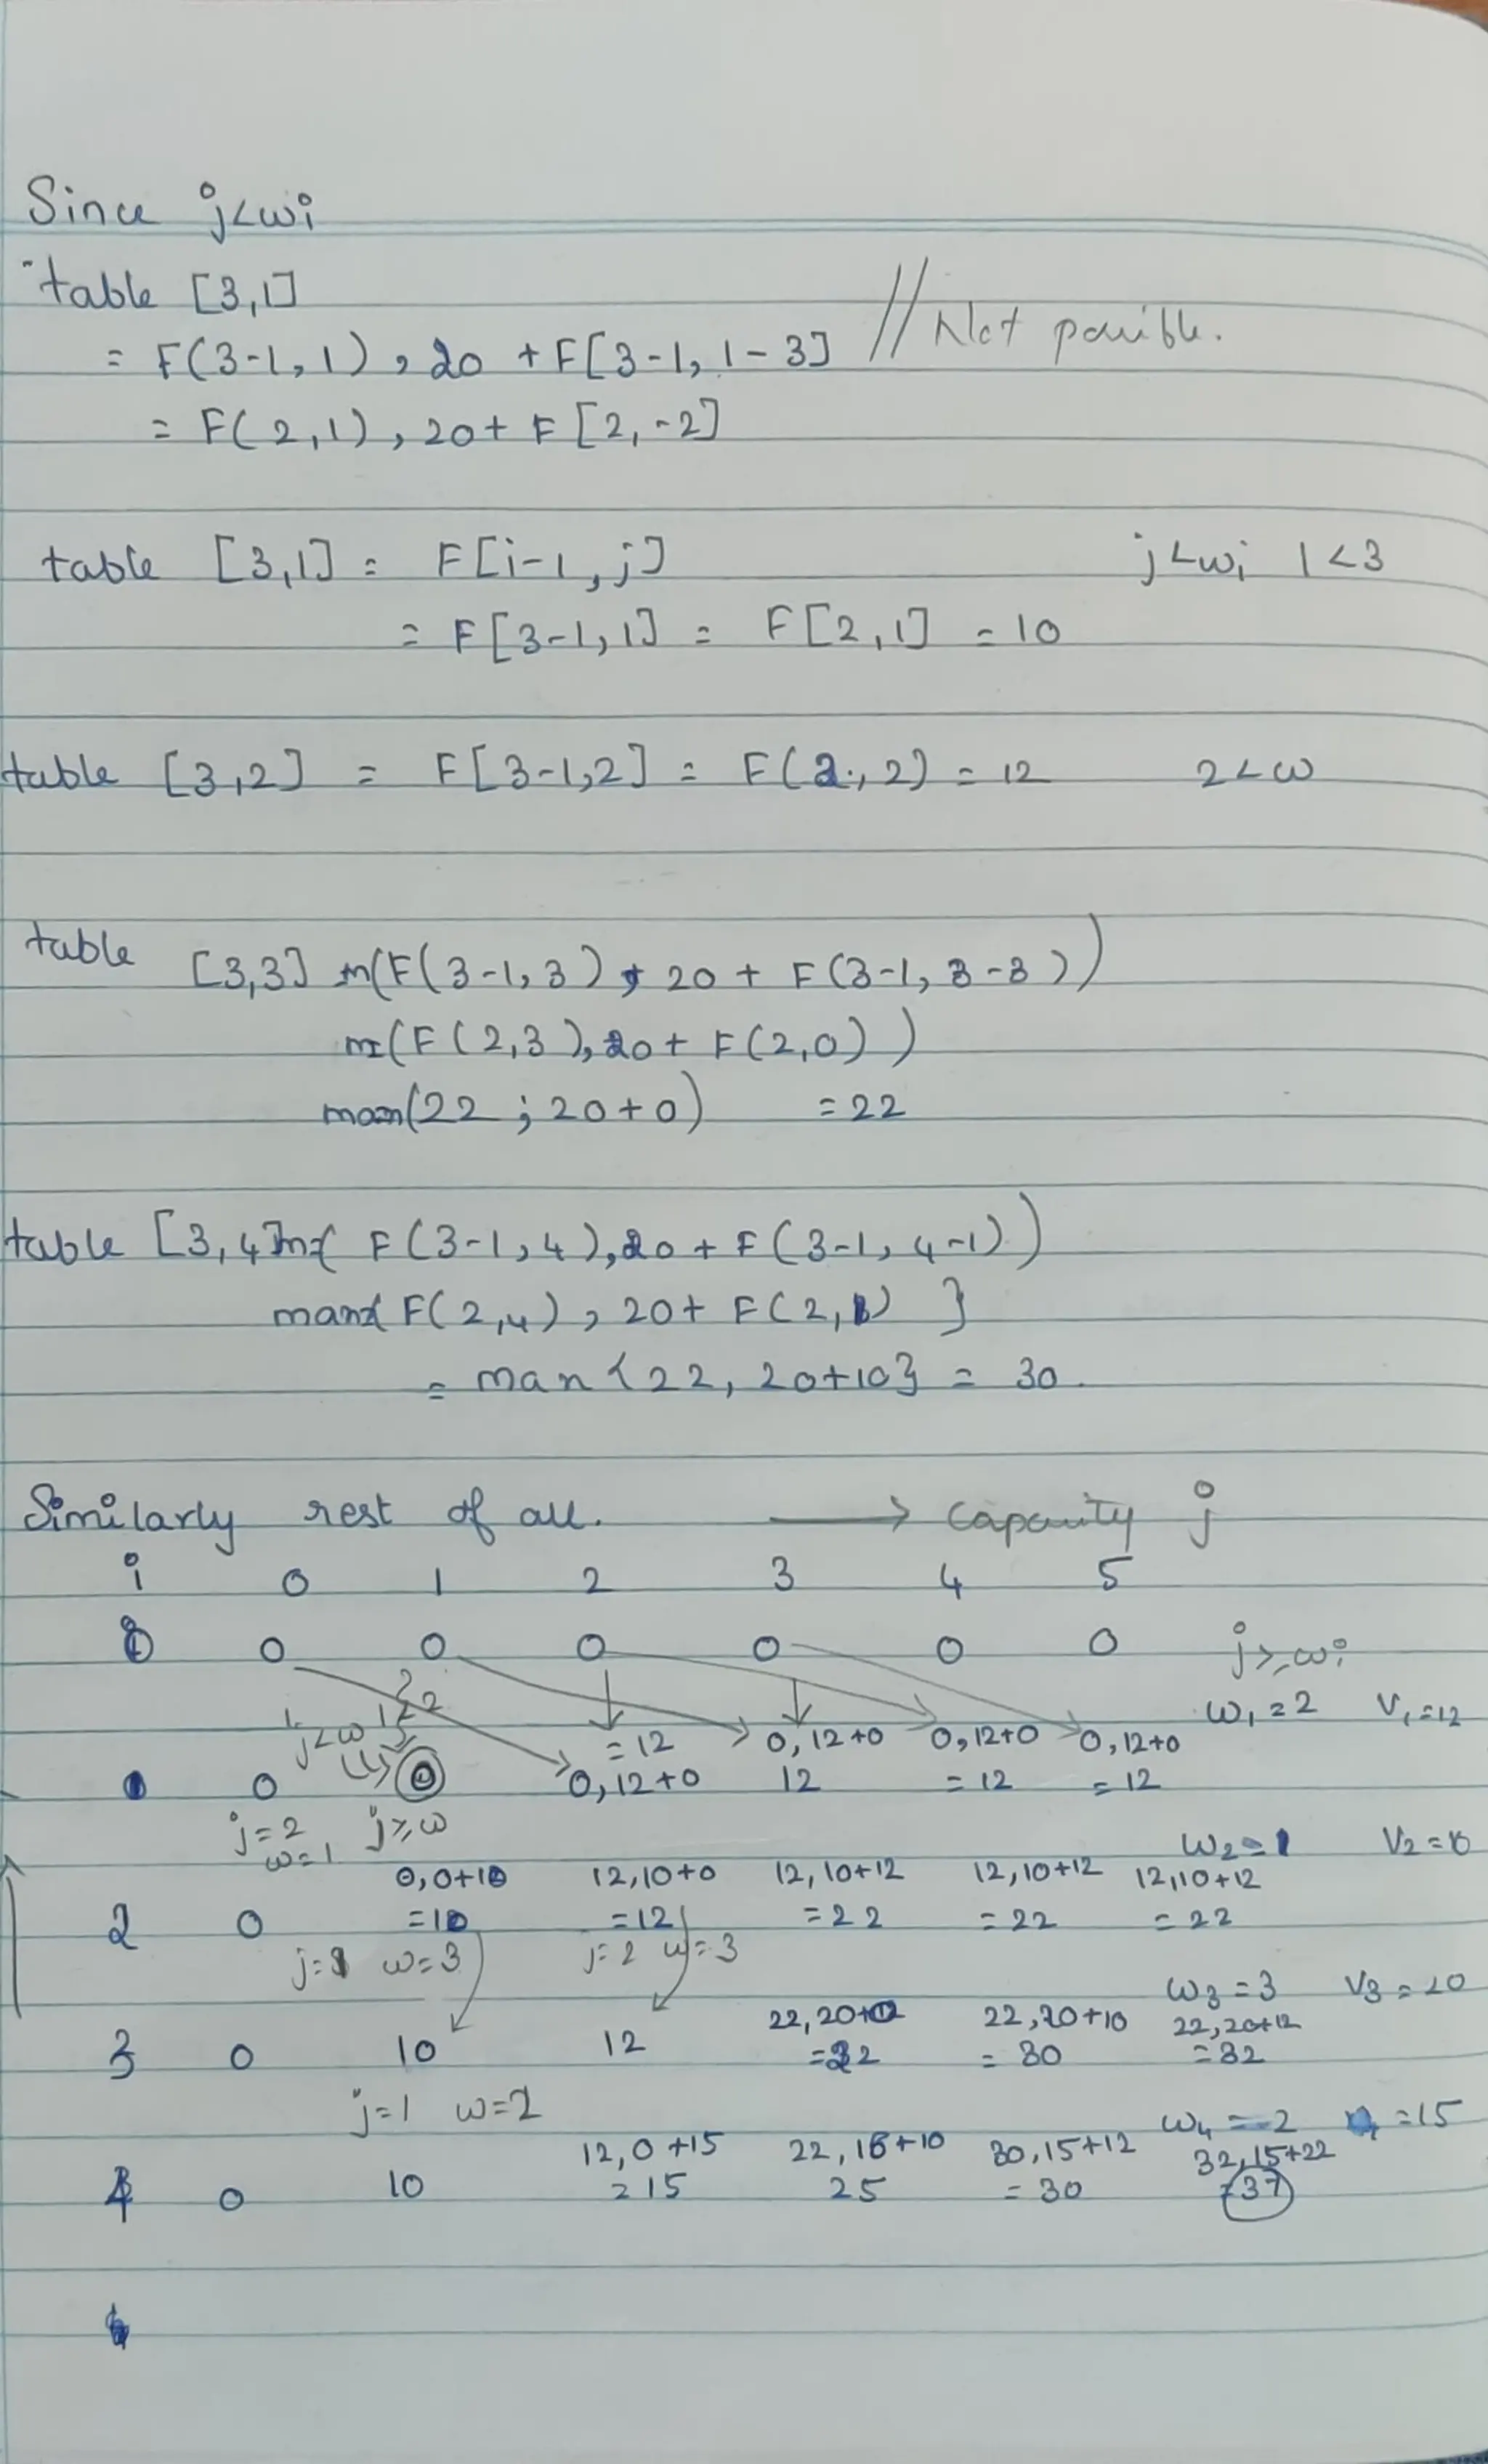 Since j<wi
table [3,1]
= F(3-1, 1) , 20 + F[3-1, 1-3] // Not possible.
= F(2,1), 20+ F[2,-2]
table [3,1] = F[i-1, j] j<wi 1<3
= F[3-1, 1] = F[2,1] = 10
table [3,2] = F[3-1,2] = F(2,2) = 12 2<w
table [3,3] m(F(3-1,3), 20 + F(3-1, 3-3))
m(F(2,3), 20+ F(2,0))
max(22 ; 20+0) = 22
table [3,4] m{ F(3-1, 4), 20 + F(3-1, 4-1))
max{ F(2,4) , 20+ F(2,1) }
= max {22, 20+10} = 30.
Similarly rest of all. → Capacity j
i 0 1 2 3 4 5
0 0 0 0 0 0 0 j>,wi
w1=2 V1=12
j<w 1<2
=12 0,12+0 0,12+0 0,12+0
1 0 0 0,12+0 12 =12 =12
j=2 w=1 j>,w
w2=1 V2=10
0,0+10 12,10+0 12,10+12 12,10+12 12,10+12
2 0 =10 =12 =22 =22 =22
j=1 w=3 j=2 w=3
w3=3 V3=20
22,20+0 22,20+10 22,20+12
3 0 10 12 =22 =30 =32
j=1 w=2
w4=2 =15
12,0+15 22,15+10 30,15+12 32,15+22
4 0 10 =15 25 =30 =37